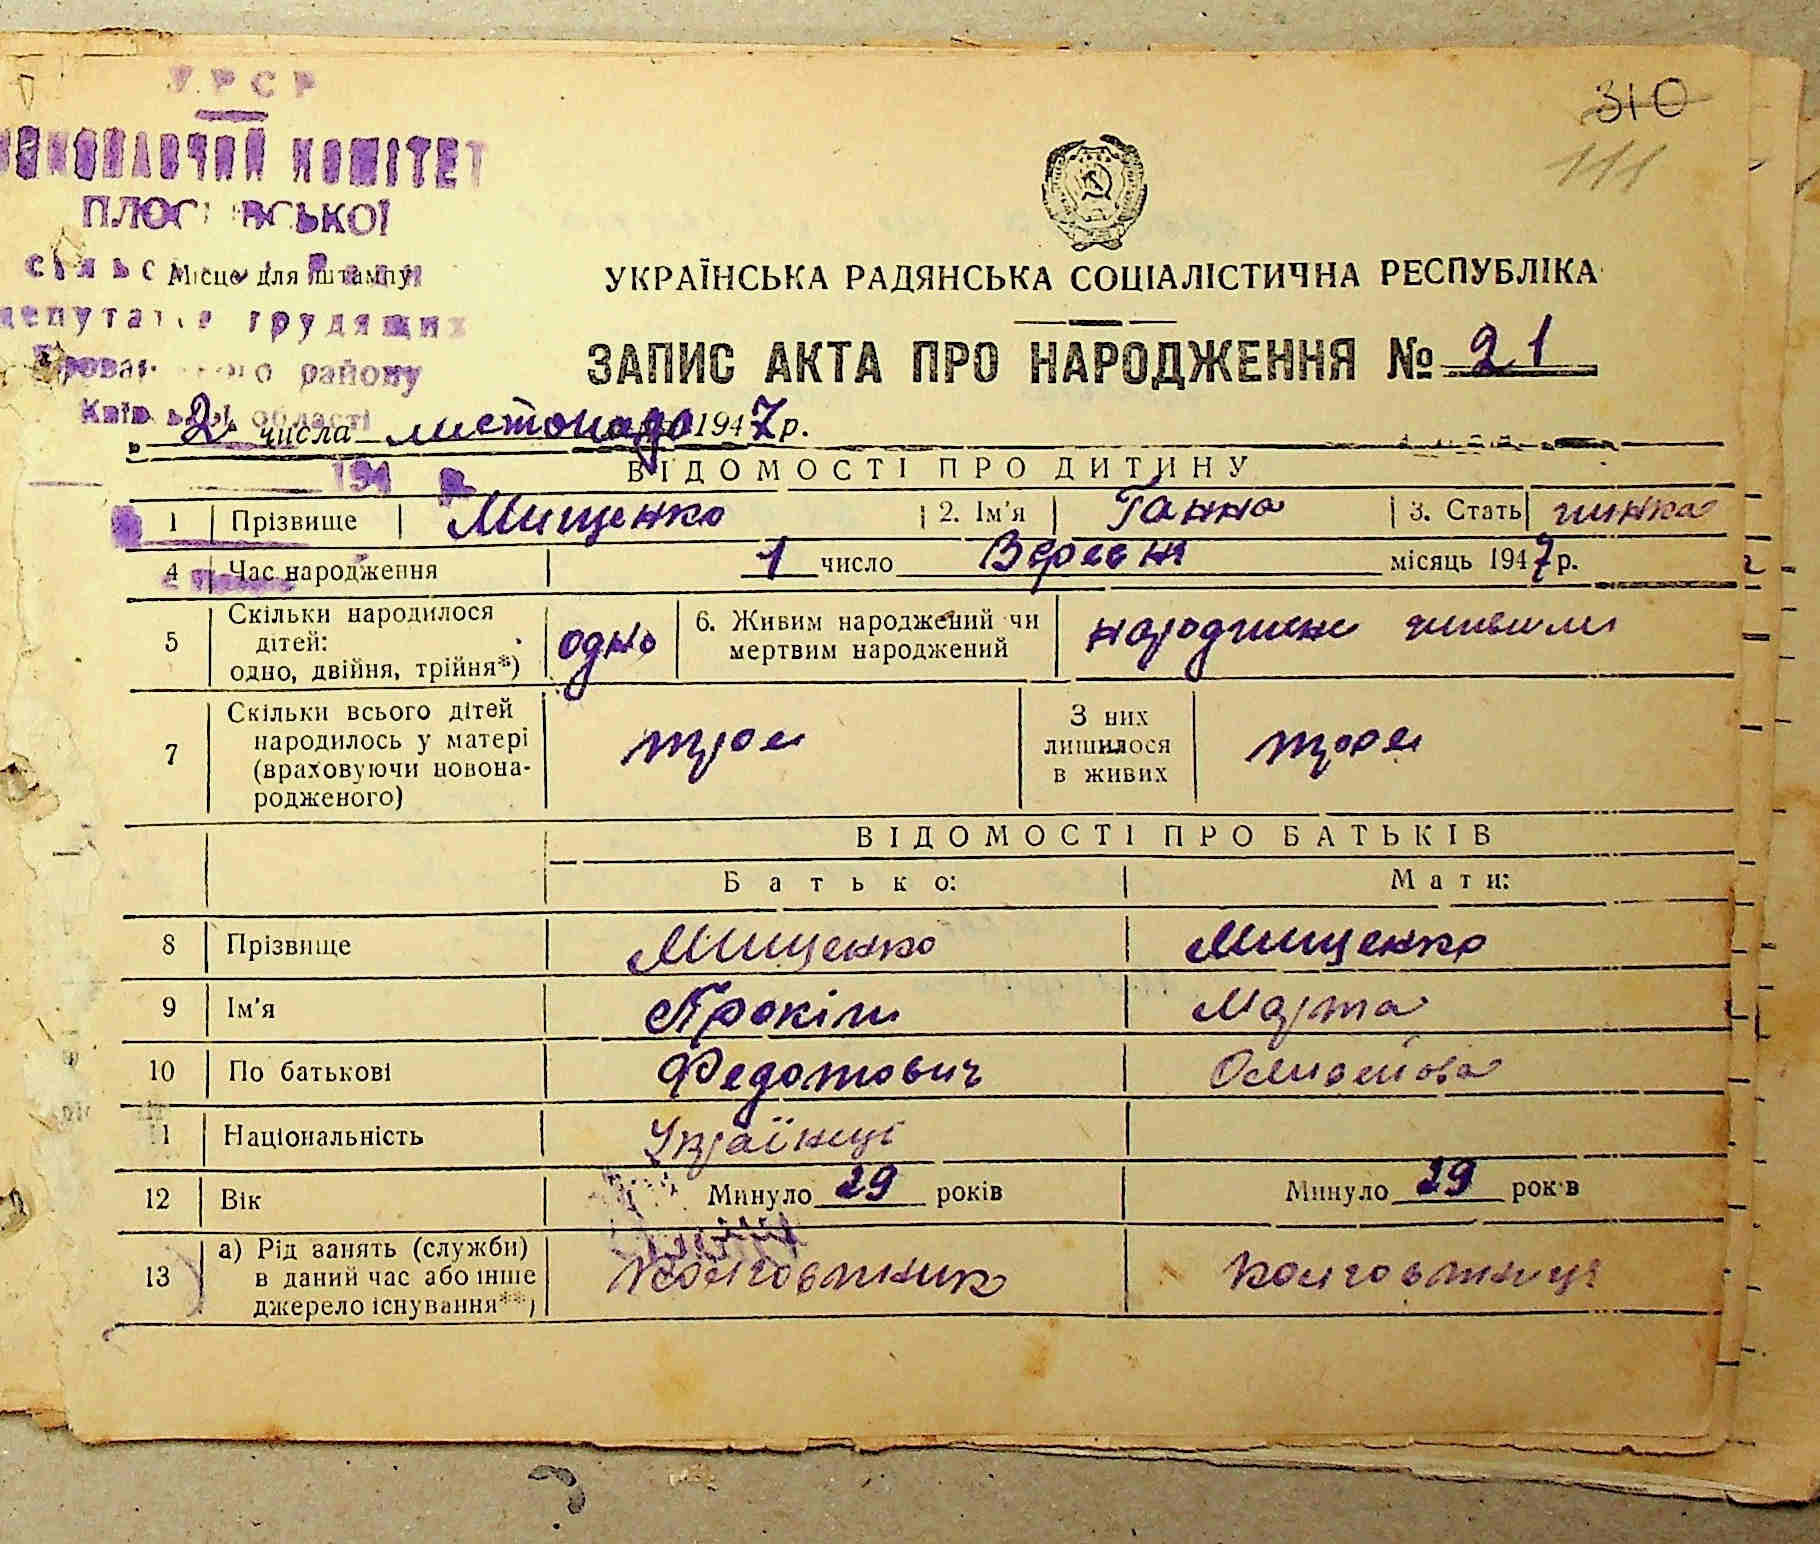 УРСР
ВИКОНАВЧИЙ КОМІТЕТ
ПЛОСКІВСЬКОЇ
сільської Ради
Місце для штампу
депутатів трудящих
Броварського району
Київської області
194 р.
310
111
УКРАЇНСЬКА РАДЯНСЬКА СОЦІАЛІСТИЧНА РЕСПУБЛІКА
ЗАПИС АКТА ПРО НАРОДЖЕННЯ № 21
„2 числа листопада 1947 р.
ВІДОМОСТІ ПРО ДИТИНУ
1 Прізвище Мищенко 2. Ім'я Ганна 3. Стать жинка
4 Час народження 1 число Вересня місяць 1947 р.
5 Скільки народилося дітей: одно, двійня, трійня*) одно 6. Живим народжений чи мертвим народжений живими
7 Скільки всього дітей народилось у матері (враховуючи новонародженого) троє З них лишилося в живих троє
ВІДОМОСТІ ПРО БАТЬКІВ
Батько: Мати:
8 Прізвище Мищенко Мищенко
9 Ім'я Прокіп Марта
10 По батькові Федотович
11 Національність Українці
12 Вік Минуло 29 років Минуло 29 років
13 а) Рід занять (служби) в даний час або інше джерело існування**) колговпник колговпниця